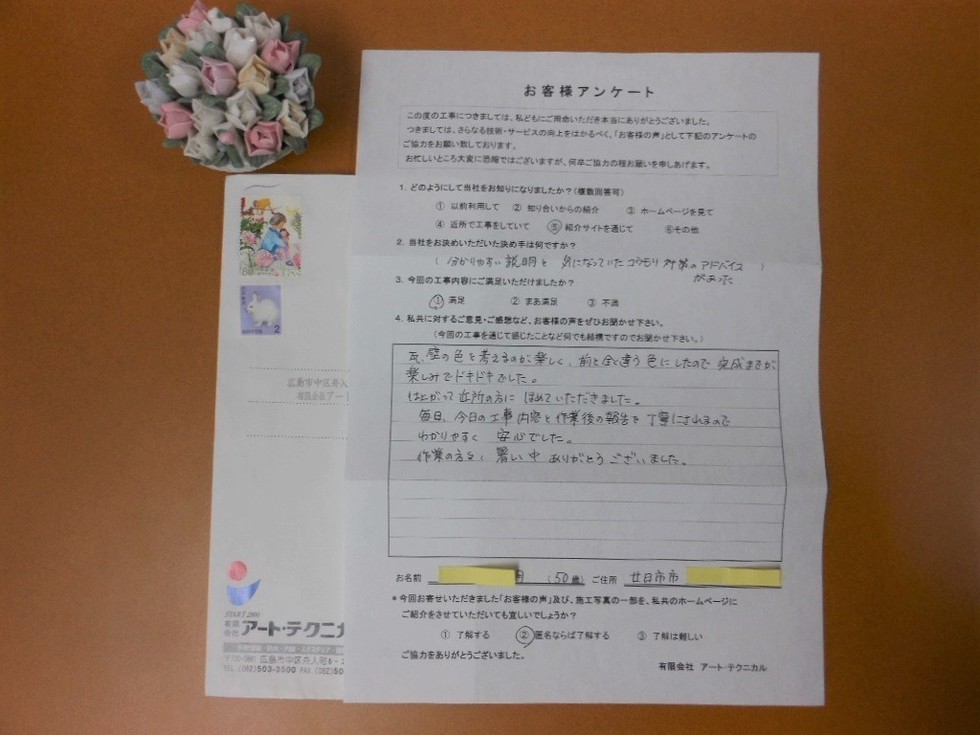 お客様アンケート
この度の工事につきましては、私どもにご用命いただき本当にありがとうございました。
つきましては、さらなる技術・サービスの向上をはかるべく、「お客様の声」として下記のアンケートの
ご協力をお願い致しております。
お忙しいところ大変に恐縮ではございますが、何卒ご協力の程お願いを申しあげます。
1. どのようにして当社をお知りになりましたか？(複数回答可)
① 以前利用して ② 知り合いからの紹介 ③ ホームページを見て
④ 近所で工事をしていて ⑤ 紹介サイトを通じて ⑥その他
2. 当社をお決めいただいた決め手は何ですか？
( 分かりやすい説明と 気になっていたコウモリ対策のアドバイス )
があった
3. 今回の工事内容にご満足いただけましたか？
① 満足 ② まあ満足 ③ 不満
4. 私共に対するご意見・ご感想など、お客様の声をぜひお聞かせ下さい。
(今回の工事を通じて感じたことなど何でも結構ですのでお聞かせ下さい。)
瓦、壁の色を考えるのが楽しく、前と全く違う色にしたので 完成までが
楽しみでドキドキでした。
仕上がって近所の方に ほめていただきました。
毎日、今日の工事内容と作業後の報告を丁寧にされるので
わかりやすく 安心でした。
作業の方々、暑い中 ありがとうございました。
お名前 (50歳) ご住所 廿日市市
*今回お寄せいただきました「お客様の声」及び、施工写真の一部を、私共のホームページに
ご紹介をさせていただいても宜しいでしょうか？
① 了解する ② 匿名ならば了解する ③ 了解は難しい
ご協力をありがとうございました。
有限会社 アート・テクニカル
80
2
広島市中区舟入
有限会社アート
START2000
有限会社 アート・テクニカ
広島市中区舟入町6-
TEL (082)503-3500 FAX (082)50